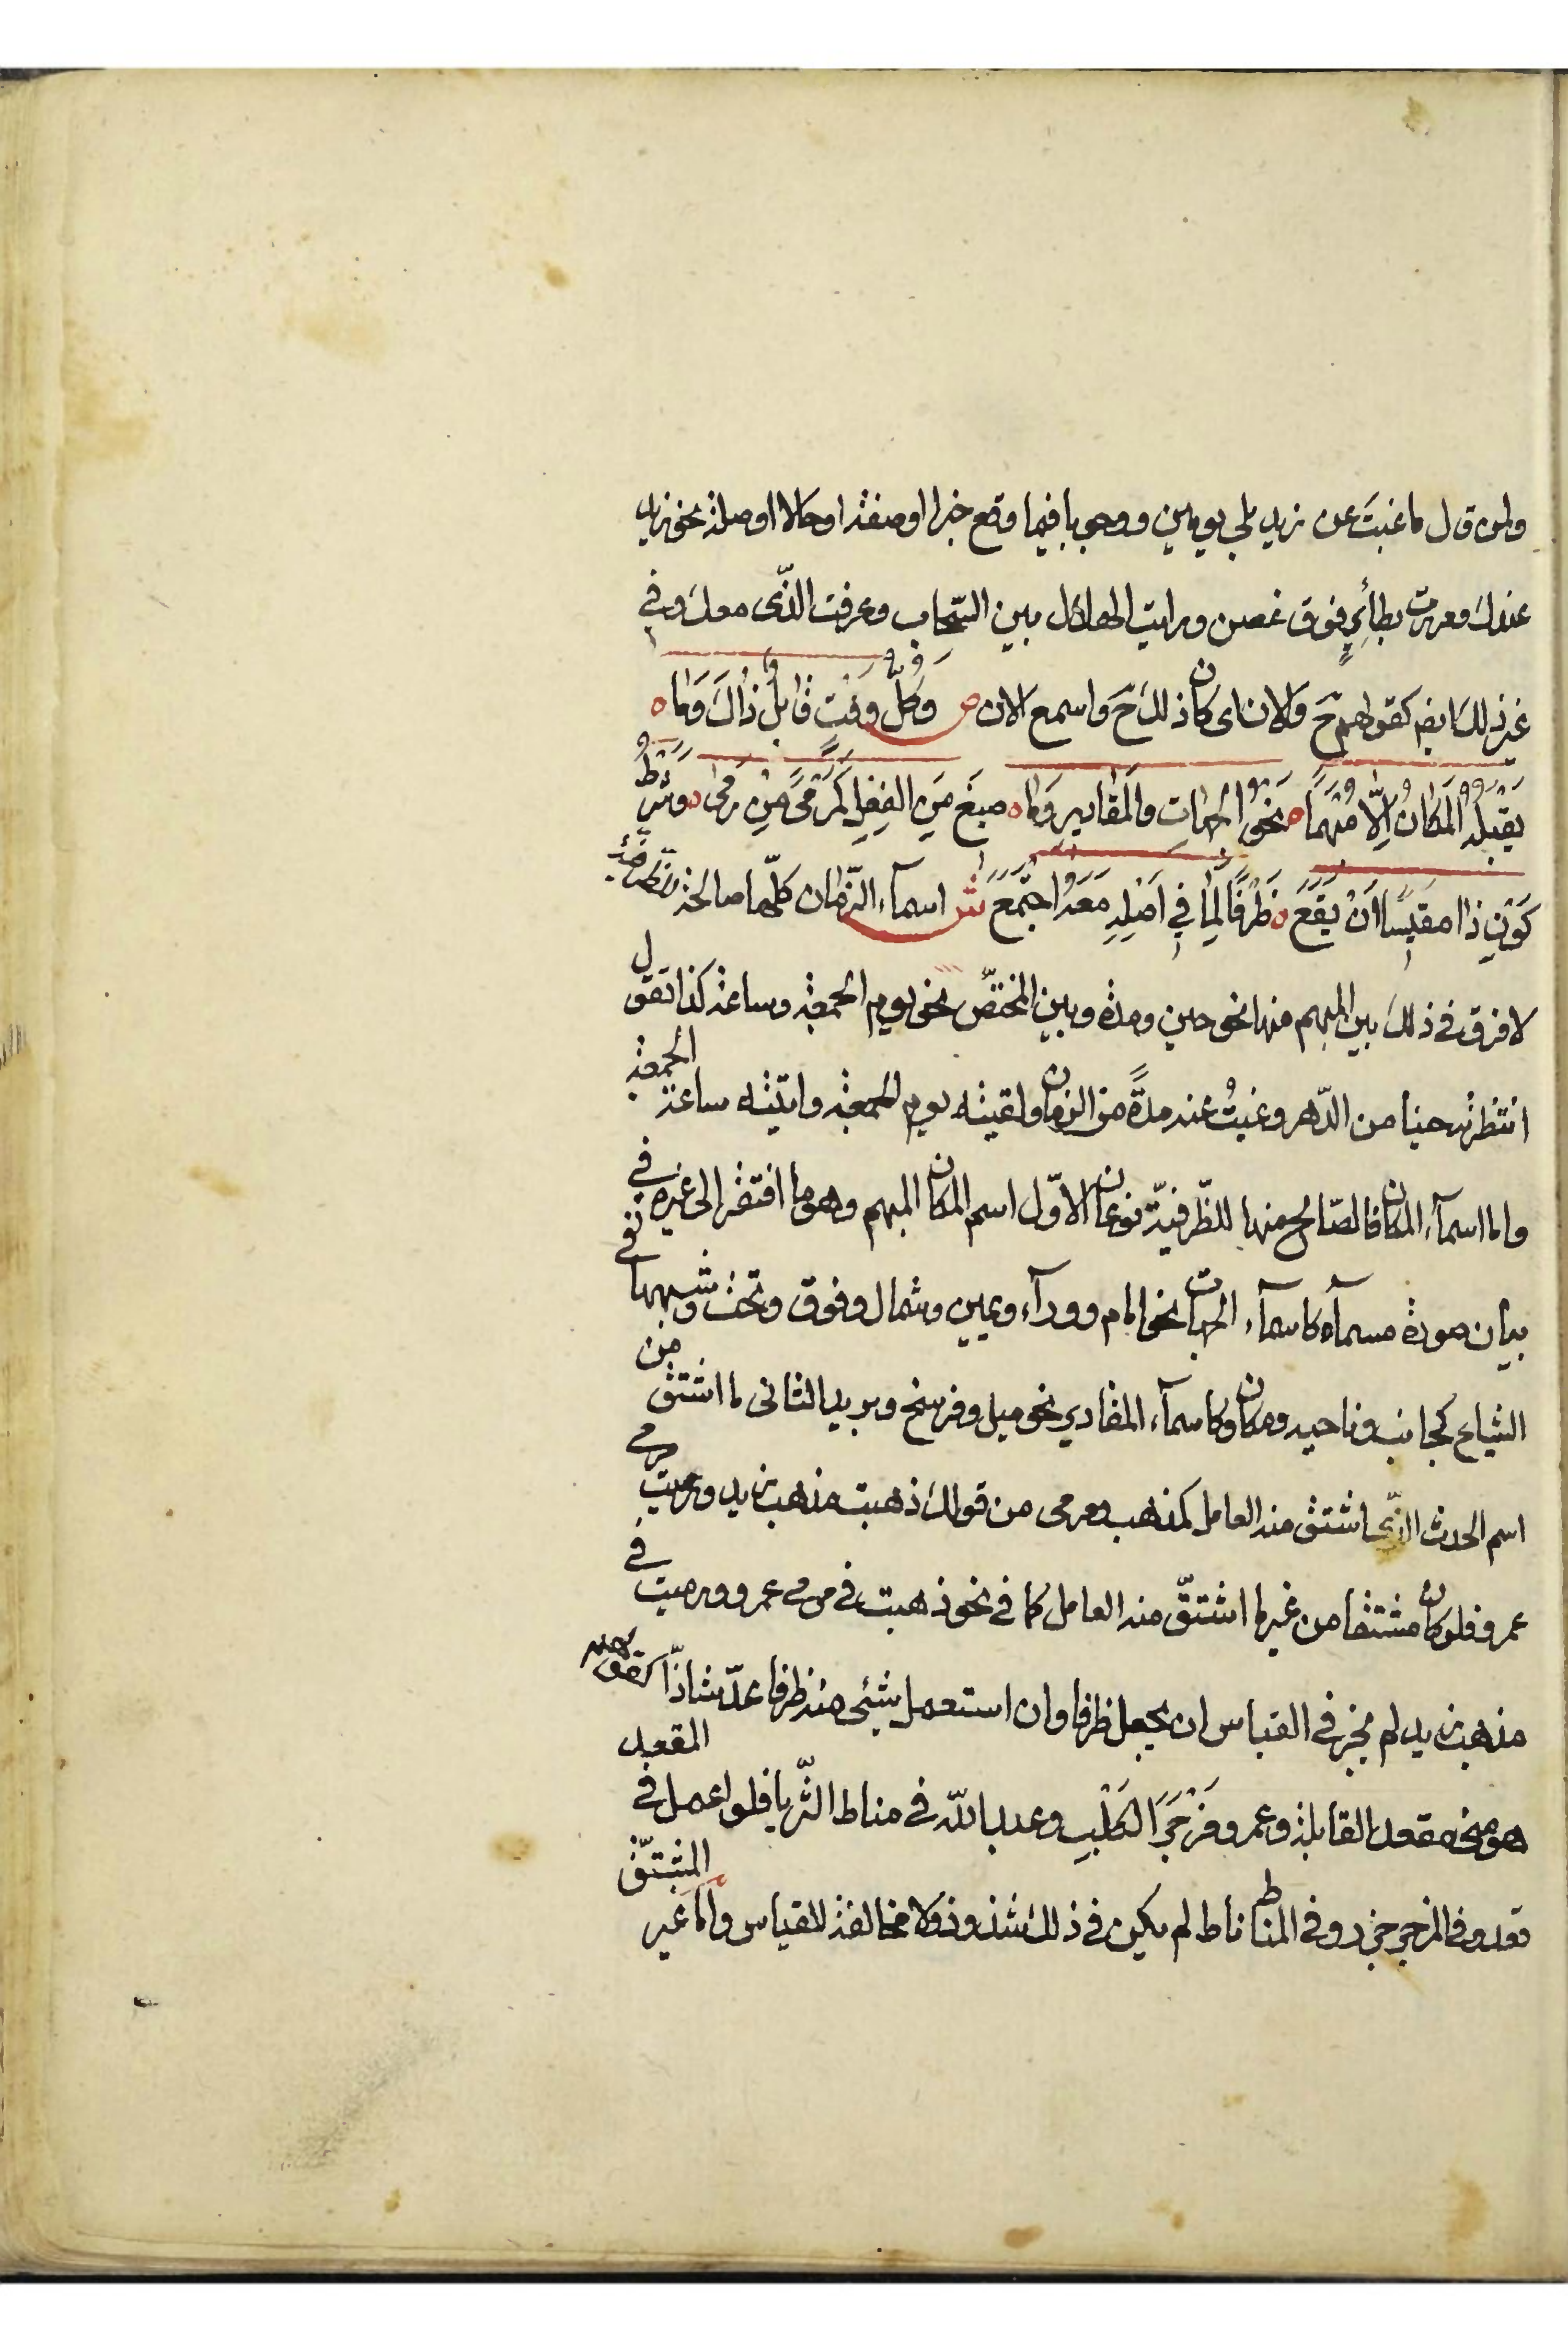 ولمن قال ما غبت عن زيد بلى يومين ووجوبا فيما وقع خبرا او صفة او حالا او صلة نحو زيد
عندك ومررت بطائر فوق غصن ورايت الهلال بين السّحاب وعرفت الذّى معك وفي
غير ذلك ايض كقولهم ح والان اى كان ذلك ح واسمع الان ص وَكُلُّ وَقْتٍ قَابِلٌ ذَاكَ وَمَا ه
يَقْبَلُهُ الْمَكَانُ اِلَّا مُبْهَمًا ه نَحْوُ الْجِهَاتِ وَالْمَقَادِيرِ وَمَا ه صِيغَ مِنَ الْفِعْلِ كَمَرْمًى مِنْ رَمَى ه وَشَرْطُ
كَوْنِ ذَا مَقِيسًا اَنْ يَقَعَ ه ظَرْفًا لِمَا فِي اَصْلِهِ مَعَهُ اجْتَمَعَ ش اسمآء الزّمان كلّها صالحة للظرفية
لا فرق في ذلك بين المبهم منها نحو حين ومدة وبين المختصّ نحو يوم الجمعة وساعة كذا تقول
انتظرته حينا من الدّهر وغبتُ عنه مدةً من الزمان ولقيته يوم الجمعة واتيته ساعة الجمعة
واما اسمآء المكان فالصّالح منها للظّرفيّة نوعان الاوّل اسم المكان المبهم وهو ما افتقر الى غيره في
بيان صورة مسمآه كاسمآء الجهات نحو امام وورآء ويمين وشمال وفوق وتحت وشبهها في
الشياع كجانب وناحيه ومكان وكاسمآء المقادير نحو ميل وفرسخ وبريد الثانى ما اشتق من
اسم الحدث الذّى اشتق منه العامل كمذهب ومرمى من قولك ذهبت مذهب زيد ورميت مرمى
عمرو فلو كان مشتقا من غير ما اشتقّ منه العامل كما في نحو ذهبت في مرمى عمرو ورميت في
مذهب زيد لم يجز في القياس ان يجعل ظرفا وان استعمل شيئ منه ظرفا عدّ شاذّا كقولهم
هو منى مقعد القابلة وعمرو مَزْجَرَ الْكَلْبِ وعبد الله في مناط الثّريا فلو اعمل في المقعد
قعد وفي المزجر زجر وفي المناط ناط لم يكن في ذلك شذوذ ولا مخالفة للقياس واما غير المشتقّ